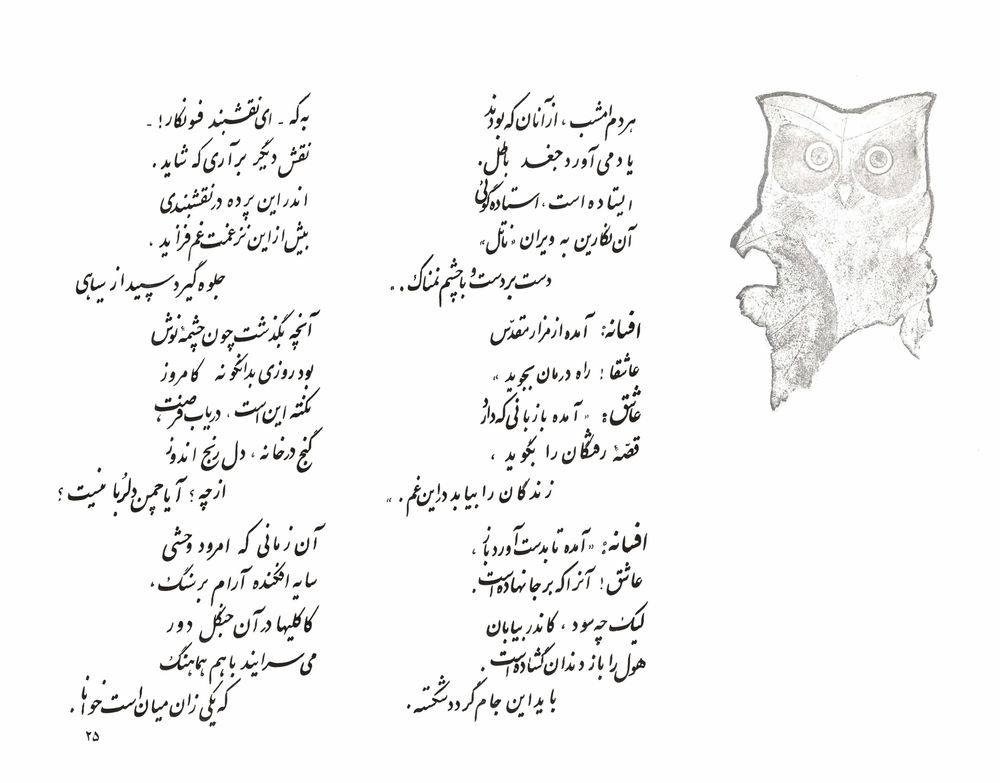 هر دم امشب ، از آنان که بودند
یاد می آورد جغد باطل .
ایستاده است ، استاده گوئی
آن نگارین به ویران «ناتل»
دست بر دست و با چشم نمناک . .
افسانه : آمده از مزار مقدّس
عاشقا ! راه درمان بجوید »
عاشق : « آمده با زبانی که دارد
قصّهٔ رفتگان را بگوید ،
زندگان را بیابد در این غم . »
افسانه : « آمده تا بدست آورد باز ،
عاشق ! آنرا که بر جا نهاده است .
لیک چه سود ، کاندر بیابان
هول را باز دندان گشاده است .
باید این جام گردد شکسته .
به که ـ ای نقشبند فسونکار ! ـ
نقش دیگر بر آری که شاید .
اندر این پرده در نقشبندی
بیش از این نز غمت غم فزاید .
جلوه گیرد سپید از سیاهی
آنچه بگذشت چون چشمهٔ نوش
بود روزی بدانگونه کامروز
نکته این است ، دریاب فرصت
گنج در خانه ، دل رنج اندوز
از چه ؟ آیا چمن دلربا نیست ؟
آن زمانی که امرود وحشی
سایه افکنده آرام بر سنگ ،
کاکلیها در آن جنگل دور
می سرایند با هم هماهنگ
که یکی زان میان است خوانا .
۲۵